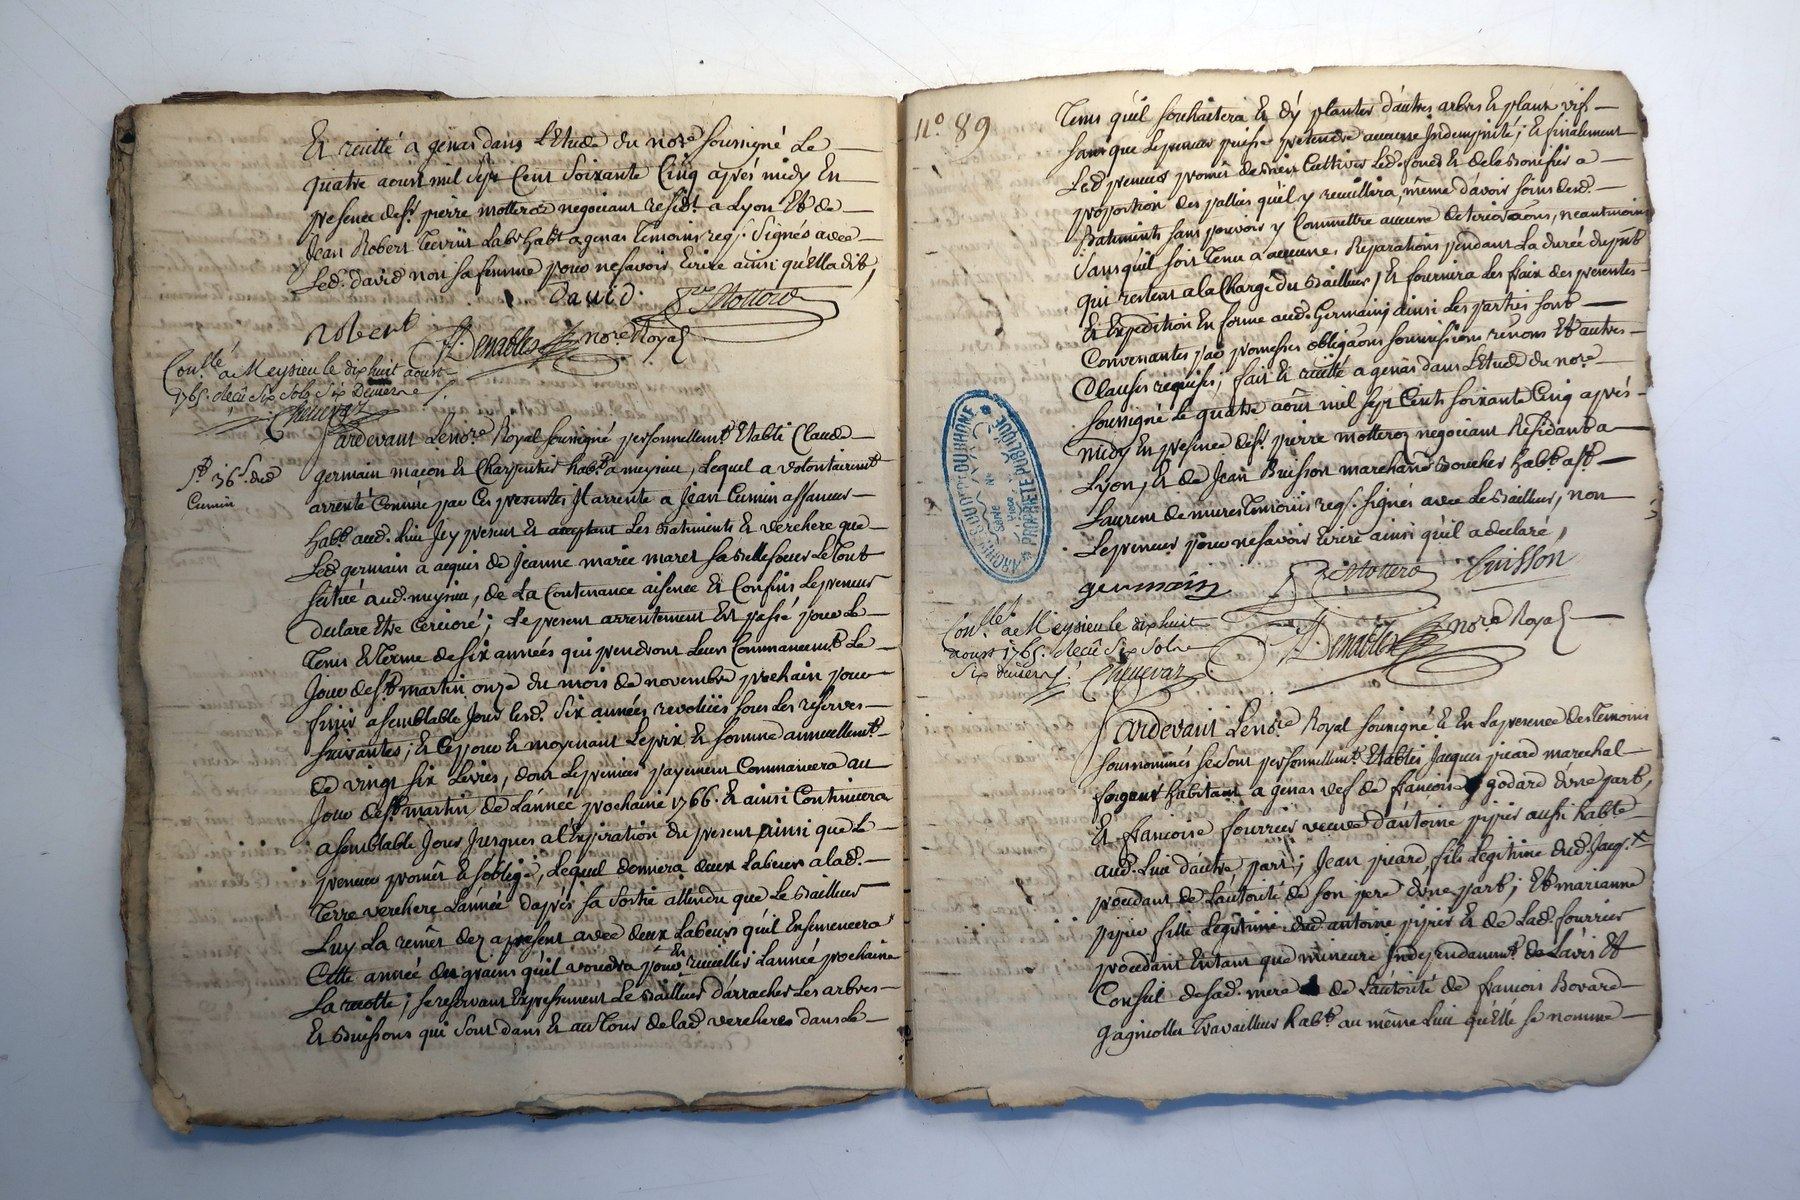 Et recitté a genas dans L'Etude du nore soussigné Le
quatre aoust mil sept Cent soixante Cinq après midy En
presence de sr. pierre motteroz negociant resid.t a Lyon Et de
Jean Robert Labr habt a genas temoins req.s signés avec
Led. david non sa femme pour ne savoir Ecrire ainsi qu'Ella dit,
David
Robert
Denables nore Royal
Con.llé a Meysieu le dix huit aoust
1765. Recû Six Sols Six Deniers
Chenevaz
Pardevant Le nore Royal soussigné personnellemt. Etabli Claude
germain maçon Et Charpentier habt. a meysieu, Lequel a volontairemt
arrenté Comme par Ces presentes Il arrente a Jean Cumin affaneur
habt. aud. Lieu Icy present Et acceptant Les Batiments Et verchere que
Led germain a acquis de Jeanne marie maret sa Bellesoeur Le tout
scitué aud. meysieu, de La Contenance aisence Et Confins Le preneur
declare Etre Cercioré; Le present arrentement Est passé pour Le
tems Et terme de six années qui prendront Leur Commancemt. Le
Jour de st. martin onze du mois de novembre prochain pour
finir a semblable Jour lesd. Six années revolües sous Les reserves
suivantes; Et Ce pour Et moyenant Le prix Et somme annuellemt.
de vingt six Livres, dont Le premier payement Commancera au
Jour de st. martin de L'année prochaine 1766. Et ainsi Continuera
a semblable Jour Jusques a L'Expiration du present ainsi que Le
preneur promet Et s'oblige, Lequel donnera deux Labeurs a lad.
terre verchere L'année d'après sa sortie attendu que Le Bailleur
Luy La remet dez a present avec deux Labeurs qu'il Ensemencera
Cette année des grains qu'il voudra pour en recuellir L'année prochaine
La recolte; se reservant Expressement Le Bailleur d'arracher Les arbres
Et Buissons qui sont dans Et au tour de lad. verchere dans Le
Pt. 36s. ded
Cumin
No. 89
tems qu'il souhaitera Et d'y planter d'autres arbres Et plant vif
sans que Le preneur puisse pretendre aucune Indemnité; Et finalement
Led preneur promet de Bien Cultiver Led. fond Et de le Bonifier a
proportion des pallies qu'il y recuillira, même d'avoir soins desd.
Batiments sans pouvoir y Commettre aucune deteriorãons, neantmoins
sans quil soit tenu a aucunes Reparations pendant La durée du pñt
qui restent a la Charge du Bailleur, Et fournira Les fraix des presentes
Et Expedition En forme aud. Germain; ainsi Les parties sont
Convenantes par promesses obligãons soumissions renons Et autres
Clauses requises, fait Et recitté a genas dans L'Etude du nore
soussigné Le quatre aôut mil sept Cents soixante Cinq après
midy En presence de sr. pierre motteroz negociant Residant a
Lyon, Et de Jean Buisson marchand Boucher habt. a st.
Laurent de mures temoins req.s signés avec Le Bailleur, non
Le preneur pour ne savoir Ecrire ainsi quil a declaré,
germain Buisson
Denables nore Royal
Con.llé a Meysieu le dix huit
aoust 1765. Recû Six Sols
Six deniers
Chenevaz
ARCHIVES DU DEPT DU RHONE
PROPRIÉTÉ PUBLIQUE
Pardevant Le nore Royal soussigné Et En La presence des temoins
sousnommés se sont personnellemt. Etablis Jacques picard marechal
forgeur habitant a genas vef de francoise godard d'une part,
Et francoise fourrier veuve d'antoine pipier aussi habte
aud. Lieu d'autre part; Jean picard fils Legitime dud. Jacq.
procedant de L'autorité de son pere d'une part; Et marianne
pipier fille Legitime dud antoine pipier Et de Lad. fourrier
procedant En tant que mineure Independamt. de L'avis Et
Conseil de sad. mere de L'autorité de francois Bovard
gagniollet travailleur habt. au même Lieu qu'Elle se nomme